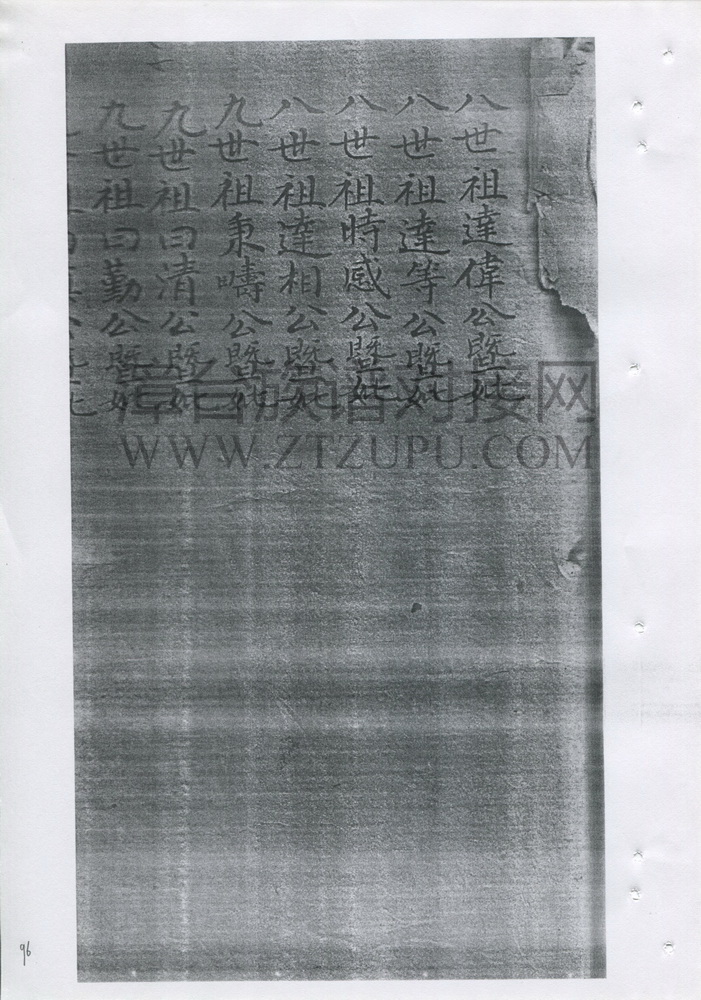 八世祖達偉公暨妣
八世祖達等公暨妣
八世祖時感公暨妣
八世祖達相公暨妣
九世祖秉疇公暨妣
九世祖曰清公暨妣
九世祖曰勤公暨妣
族谱对接网
WWW.ZTZUPU.COM
96